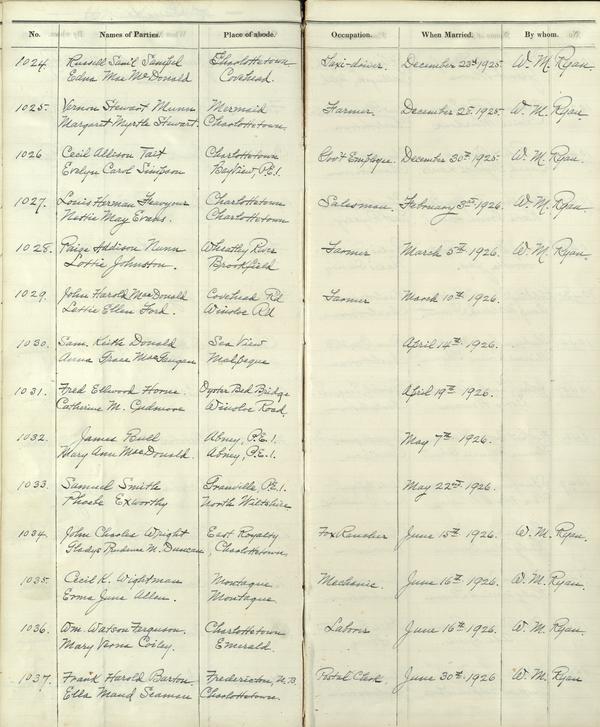 No. Names of Parties. Place of abode. Occupation. When Married. By whom.
1024. Russell Saml Sampul Charlottetown Taxi-driver. December 23rd 1925. W. M. Ryan.
Edna Mae McDonald Covehead.
1025. Vernon Stewart Munn Mermaid Farmer. December 25. 1925. W. M. Ryan.
Margaret Myrtle Stewart. Charlottetown.
1026 Cecil Allison Tait Charlottetown Gov't Employee. December 30th 1925. W. M. Ryan.
Evelyn Carol Simpson Bayview, P.E.I.
1027. Louis Herman Charlottetown Salesman. February 3rd 1926. W. M. Ryan.
Nettie May Evans. Charlottetown
1028. Paige Addison Nunn Wheatley River Farmer March 5th 1926. W. M. Ryan
Lottie Johnston. Brookfield
1029. John Harold MacDonald Covehead Rd Farmer March 10th 1926.
Lettie Ellen Ford. Winsloe Rd
1030. Sam. Keith Donald Sea View April 14th 1926.
Anna Grace Malpeque
1031. Fred Ellwood Horne. Oyster Bed Bridge April 19th 1926.
Catherine M. Cudmore Winsloe Road.
1032. James Bull Abney, P.E.I. May 7th 1926.
Mary Ann MacDonald. Abney, P.E.I.
1033. Samuel Smith Granville, P.E.I. May 22nd 1926.
Phoebe Exworthy North Wiltshire
1034. John Charles Wright East Royalty Fox Rancher June 15th 1926. W. M. Ryan.
Gladys Prudence M. Duncan Charlottetown.
1035. Cecil K. Wightman Montague Mechanic. June 16th 1926. W. M. Ryan.
Erma June Allen. Montague
1036. Wm. Watson Ferguson. Charlottetown Labour June 16th 1926. W. M. Ryan.
Mary Verna Coiley. Emerald.
1037. Frank Harold Barton Fredericton, N.B. Postal Clerk June 30th 1926 W. M. Ryan
Ella Maud Seaman Charlottetown.